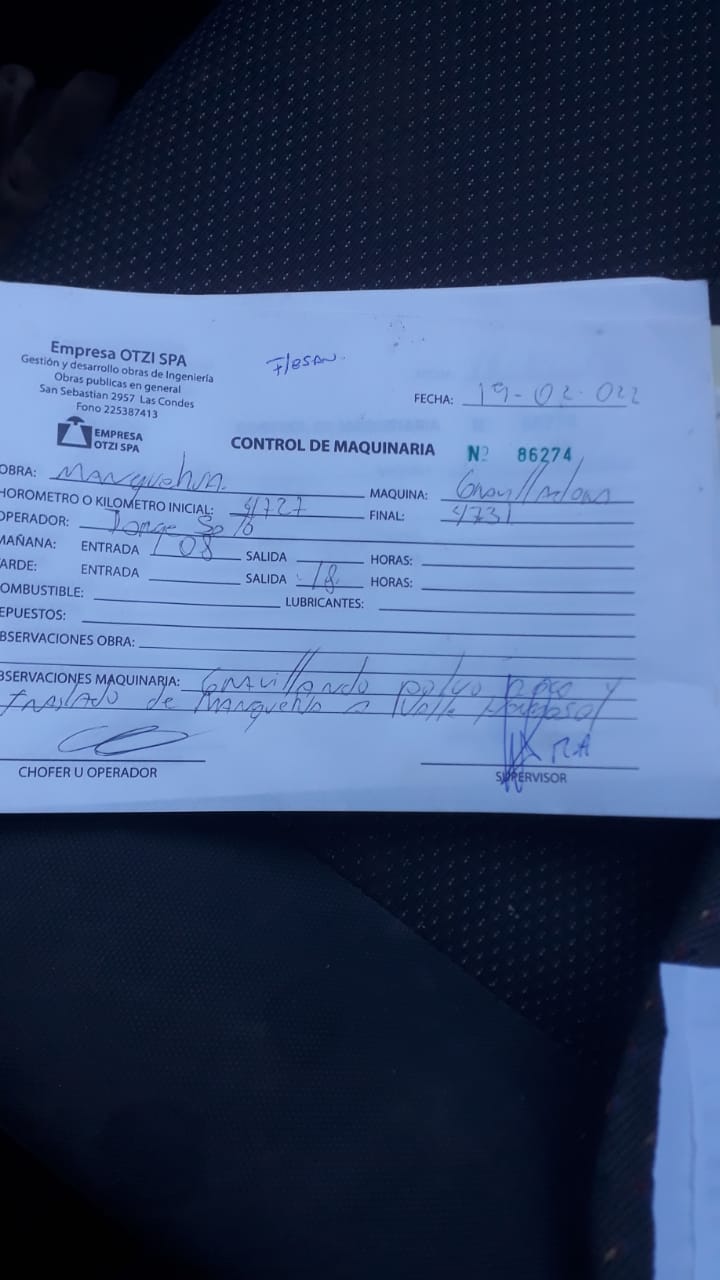 Empresa OTZI SPA
Gestión y desarrollo obras de Ingeniería
Obras publicas en general
San Sebastian 2957 Las Condes
Fono 225387413
EMPRESA
OTZI SPA
FECHA: 19-02-022
CONTROL DE MAQUINARIA Nº 86274
OBRA: Manquehue MAQUINA:
HOROMETRO O KILOMETRO INICIAL: 4727 FINAL: 4731
OPERADOR: Jorge Soto
MAÑANA: ENTRADA 08 SALIDA HORAS:
TARDE: ENTRADA SALIDA 18 HORAS:
OMBUSTIBLE: LUBRICANTES:
EPUESTOS:
BSERVACIONES OBRA:
BSERVACIONES MAQUINARIA: Gravillando polvo roca y
traslado de Manquehue a Valle
CHOFER U OPERADOR
SUPERVISOR